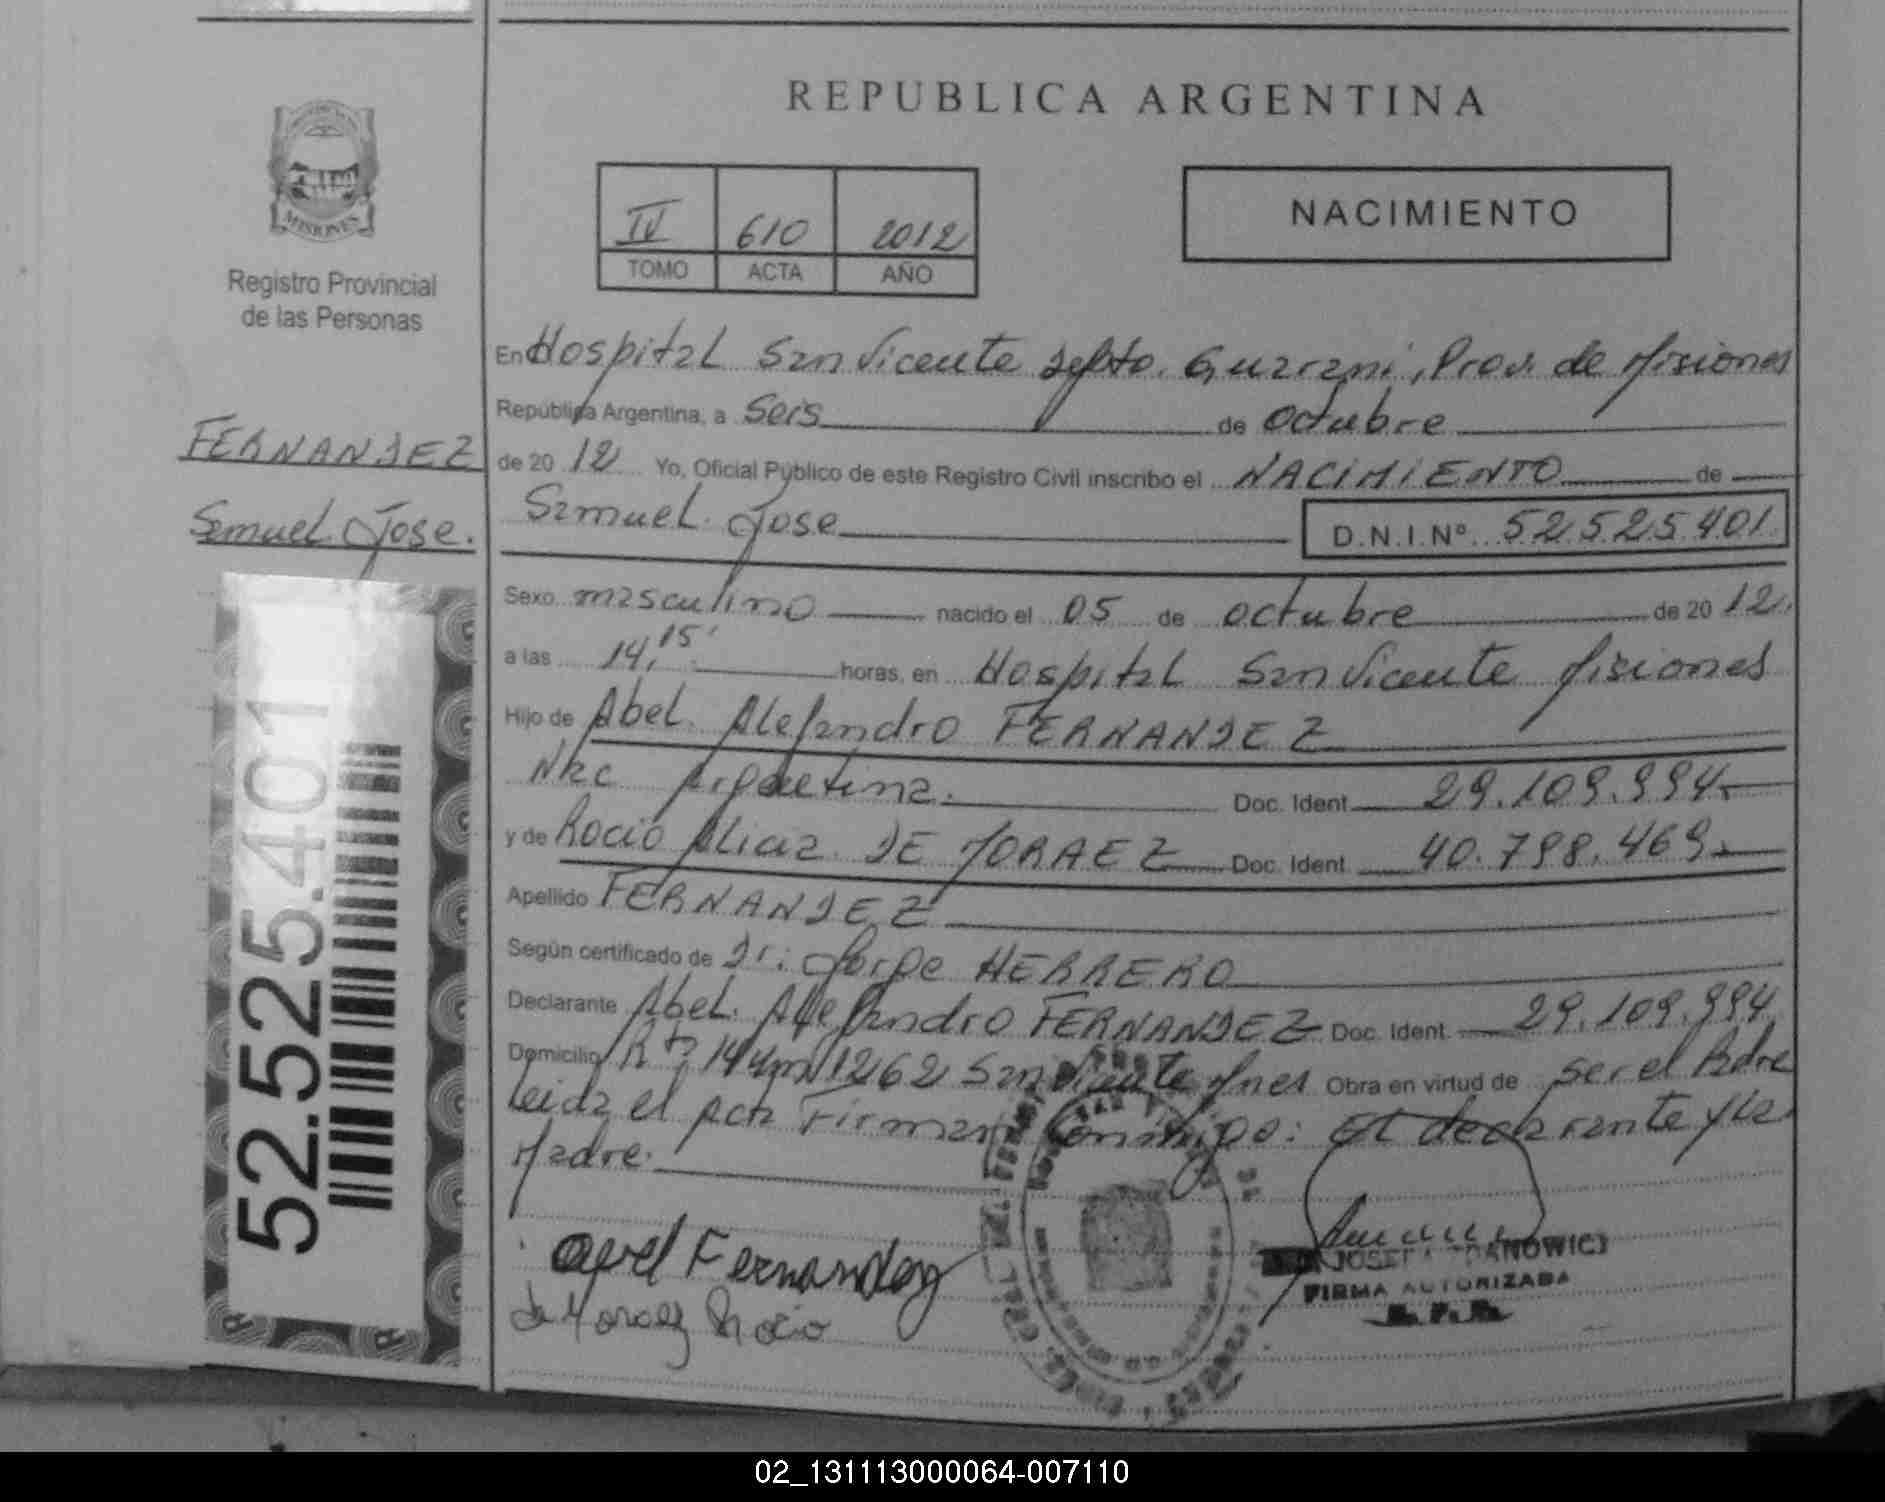 REPUBLICA ARGENTINA
MISIONES
Registro Provincial
de las Personas
IV 610 2012
TOMO ACTA AÑO
NACIMIENTO
En Hospital San Vicente Depto. Guarani, Prov. de Misiones
República Argentina, a Seis de octubre
de 20 12 Yo, Oficial Público de este Registro Civil inscribo el NACIMIENTO de
Samuel Jose D.N.I.Nº 52.525.401
FERNANDEZ
Samuel Jose.
52.525.401
Sexo masculino nacido el 05 de octubre de 20 12.
a las 14,15' horas, en Hospital San Vicente Misiones
Hijo de Abel Alejandro FERNANDEZ
Nac Argentina. Doc. Ident. 29.109.994
y de Rocio Alicia DE MORAEZ Doc. Ident. 40.798.469
Apellido FERNANDEZ
Según certificado de Dr: Jorge HERRERO
Declarante Abel Alejandro FERNANDEZ Doc. Ident. 29.109.994
Domicilio 1262 San Vicente Mnes Obra en virtud de ser el Padre
Leida el acta Firman Conmigo: El declarante y la
Madre.
Fernandez
de Moraez Rocio
FIRMA AUTORIZADA
02_131113000064-007110